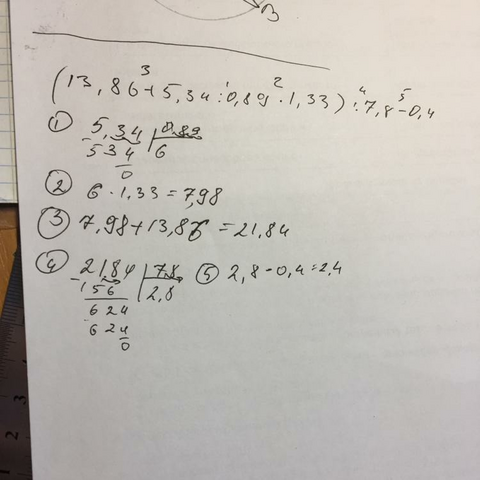 B
(13,86+5,34:0,89·1,33):7,8-0,4
3 1 2 4 5
① 5,34 | 0,89
-534 | 6
0
② 6·1,33=7,98
③ 7,98+13,86=21,84
④ 21,84 | 7,8 ⑤ 2,8-0,4=2,4
-156 | 2,8
624
624
0
1 2 3